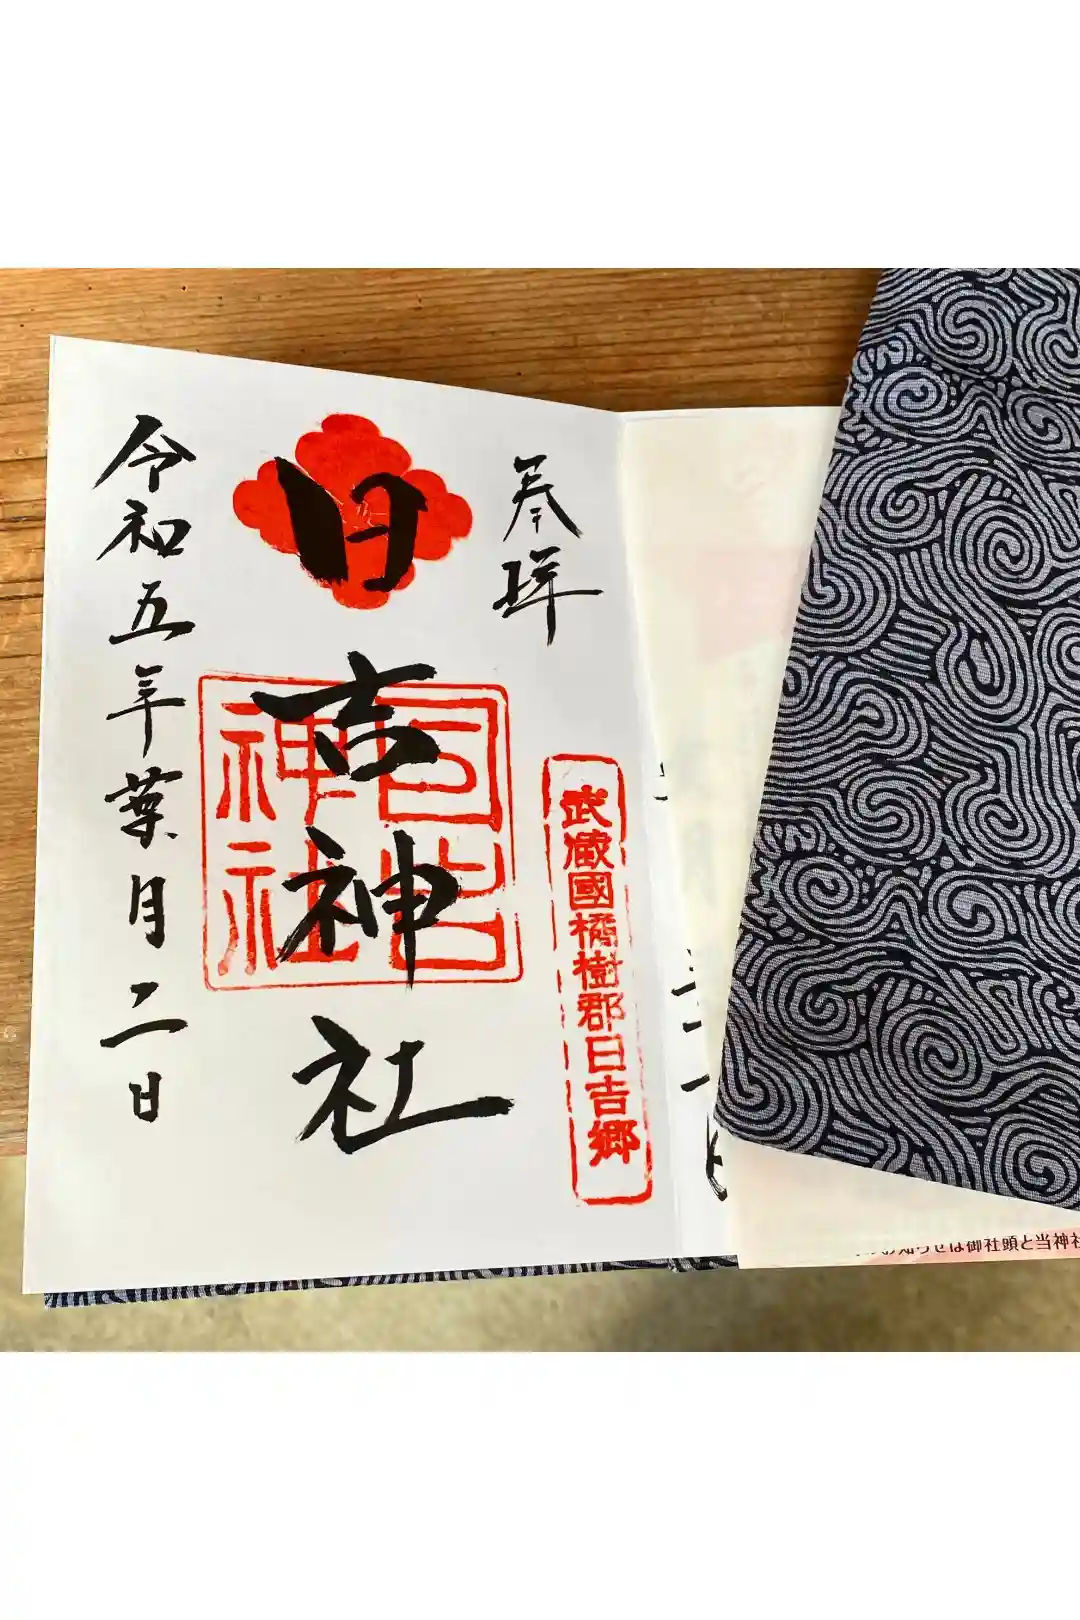 奉拝
武蔵國橘樹郡日吉郷
日吉神社
日吉神社
令和五年葉月二日
お知らせは御社頭と当神社